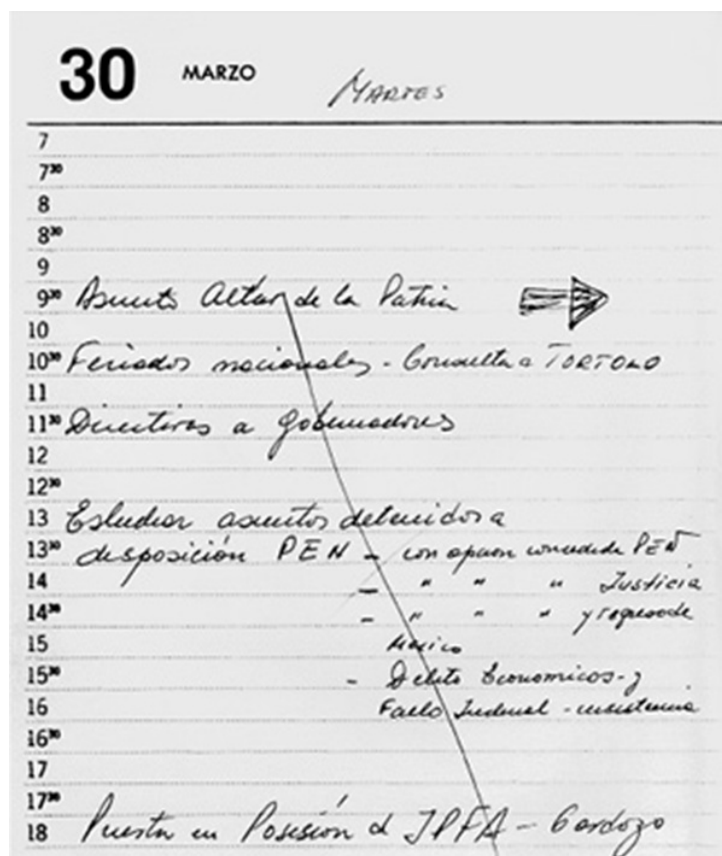 30 MARZO Martes
7
7³⁰
8
8³⁰
9
9³⁰ Asunto Altar de la Patria
10
10³⁰ Feriados nacionales - Consulta a TORTOLO
11
11³⁰ Directivas a gobernadores
12
12³⁰
13 Estudiar asuntos detenidos a
13³⁰ disposición PEN - con opcion concedida PEN
14 - " " " Justicia
14³⁰ - " " " y regreso de
15 Mexico
15³⁰ - Delito Economicos - y
16 Fallo Judicial - insistencia
16³⁰
17
17³⁰
18 Puesta en Posesión d JPFA - Cardozo